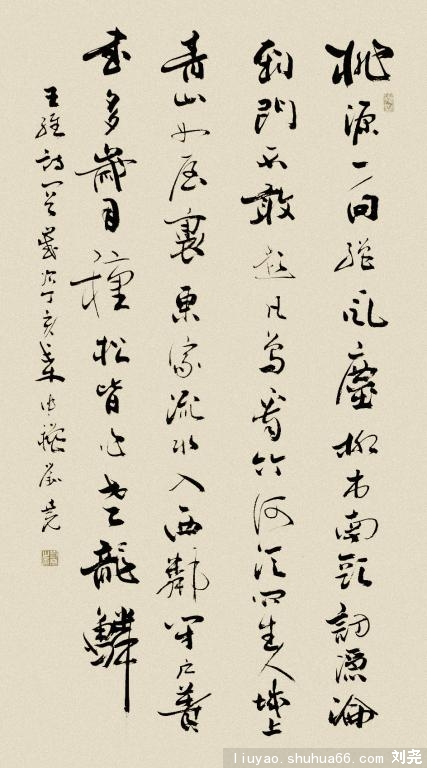 桃源一向絕風塵柳市南頭訪隱淪
到門不敢題凡鳥看竹何須問主人城上
青山如屋裏東家流水入西鄰閉戶著
書多歲月種松皆作老龍鱗
王維詩一首歲次丁亥年中穐劉堯
liuyao.shuhua66.com 刘尧